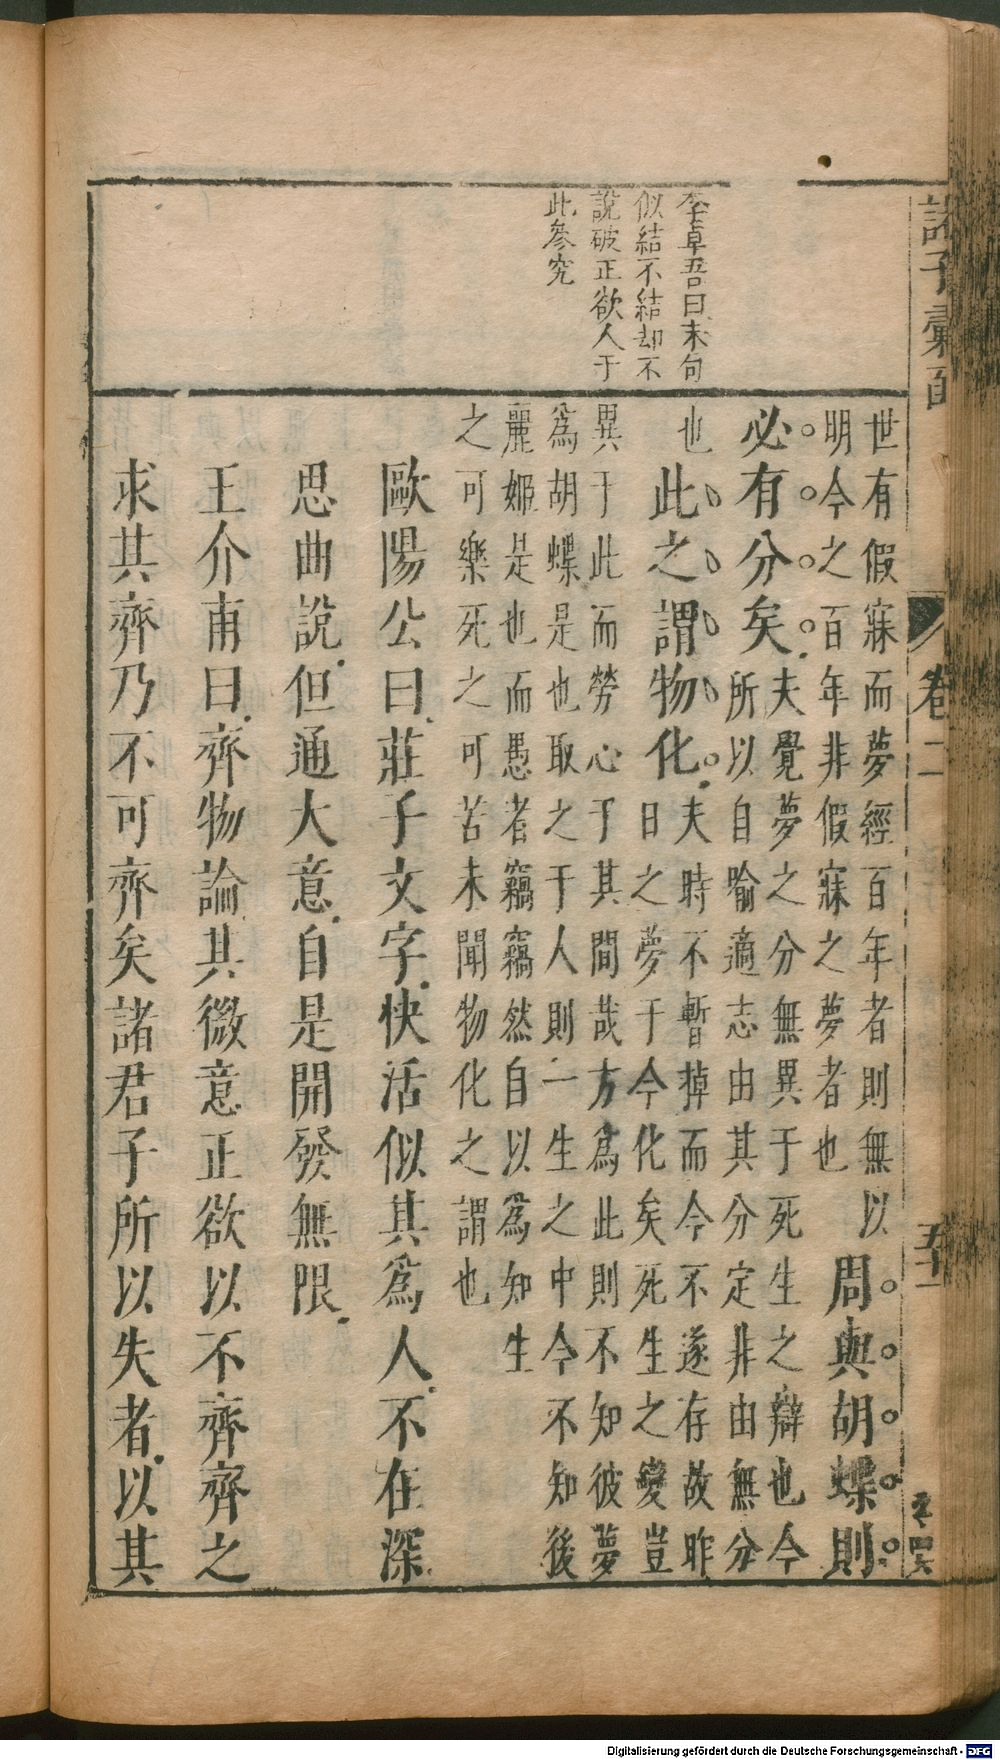 諸子彙函
卷二
五十一
李卓吾曰末句
似結不結却不
說破正欲人于
此參究
世有假寐而夢經百年者則無以
明今之百年非假寐之夢者也
周與胡蝶則
必有分矣
夫覺夢之分無異于死生之辯也今
所以自喻適志由其分定非由無分
也
此之謂物化
夫時不暫掉而今不遂存故昨
日之夢于今化矣死生之變豈
異于此而勞心于其間哉方爲此則不知彼夢
爲胡蝶是也取之于人則一生之中今不知後
麗姬是也而愚者竊竊然自以爲知生
之可樂死之可苦未聞物化之謂也
歐陽公曰莊子文字快活似其爲人不在深
思曲說但通大意自是開發無限
王介甫曰齊物論其微意正欲以不齊齊之
求其齊乃不可齊矣諸君子所以失者以其
Digitalisierung gefördert durch die Deutsche Forschungsgemeinschaft - DFG